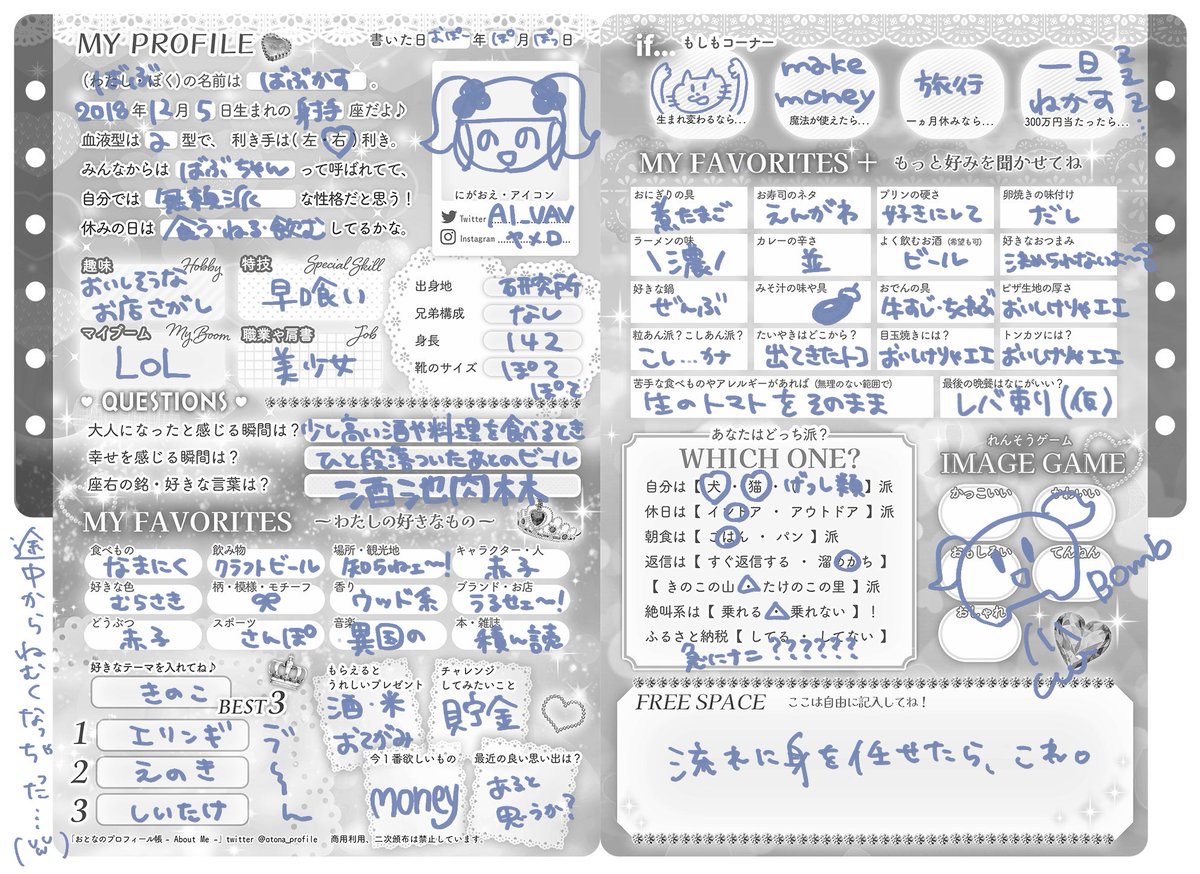 MY PROFILE
書いた日 おぽー 年 ぽ 月 ぽっ 日
(わたし・ぼく)の名前は ばぶかす 。
2018年12月5日生まれの射手座だよ♪
血液型は 2 型で、 利き手は(左・右)利き。
みんなからは ばぶちゃん って呼ばれてて、
自分では 無頼派 な性格だと思う!
休みの日は 食う・ねる・飲む してるかな。
にがおえ・アイコン
Twitter AI_VAV
Instagram ヤメロ
趣味 Hobby
おいしそうな
お店さがし
特技 Special Skill
早口喰い
マイブーム My Boom
LOL
職業や肩書 Job
美少女
出身地 研究所
兄弟構成 なし
身長 142
靴のサイズ ぽて
ぽて
QUESTIONS
大人になったと感じる瞬間は? 少し高い酒や料理を食べるとき
幸せを感じる瞬間は? ひと段落ついたあとのビール
座右の銘・好きな言葉は? 酒池肉林
MY FAVORITES ~わたしの好きなもの~
食べもの なまにく
飲み物 クラフトビール
場所・観光地 知らねェ〜!
キャラクター・人 赤子
好きな色 むらさき
柄・模様・モチーフ
香り ウッド系
ブランド・お店 うるせェ〜!
どうぶつ 赤子
スポーツ さんぽ
音楽 異国の
本・雑誌 積ん読
好きなテーマを入れてね♪
きのこ
BEST3
1 エリンギ
2 えのき
3 しいたけ
ラ〜ん
もらえると
うれしいプレゼント
酒・米
おてがみ
チャレンジ
してみたいこと
貯金
今1番欲しいもの
money
最近の良い思い出は?
あると
思うか?
「おとなのプロフィール帳 - About Me -」twitter @otona_profile 商用利用、二次頒布は禁止しています。
途中からねむくなっちゃった…
if... もしもコーナー
生まれ変わるなら…
make
money
魔法が使えたら…
旅行
一ヵ月休みなら…
一旦
ねかす
300万円当たったら…
zzz
MY FAVORITES + もっと好みを聞かせてね
おにぎりの具 煮たまご
お寿司のネタ えんがわ
プリンの硬さ 好きにして
卵焼きの味付け だし
ラーメンの味 \濃/
カレーの辛さ 並
よく飲むお酒(希望も可) ビール
好きなおつまみ 決められないお〜
好きな鍋 ぜんぶ
みそ汁の味や具
おでんの具 牛すじ・ちくわぶ
ピザ生地の厚さ おいしけりゃエエ
粒あん派?こしあん派? こし…カナ
たいやきはどこから? 出てきたトコ
目玉焼きには? おいしけりゃエエ
トンカツには? おいしけりゃエエ
苦手な食べものやアレルギーがあれば(無理のない範囲で)
生のトマトをそのまま
最後の晩餐はなにがいい?
レバ刺り(仮)
あなたはどっち派?
WHICH ONE?
自分は【 犬 ・ 猫 ・げっし類】派
休日は【 インドア ・ アウトドア 】派
朝食は【 ごはん ・ パン 】派
返信は【 すぐ返信する ・ 溜めがち 】
【 きのこの山 ・ たけのこの里 】派
絶叫系は【 乗れる ・ 乗れない 】!
ふるさと納税【 してる ・ してない 】
急にナニ??????
れんそうゲーム
IMAGE GAME
かっこいい
かわいい
おもしろい
てんねん
おしゃれ
Bomb
FREE SPACE ここは自由に記入してね!
流れに身を任せたら、これ。